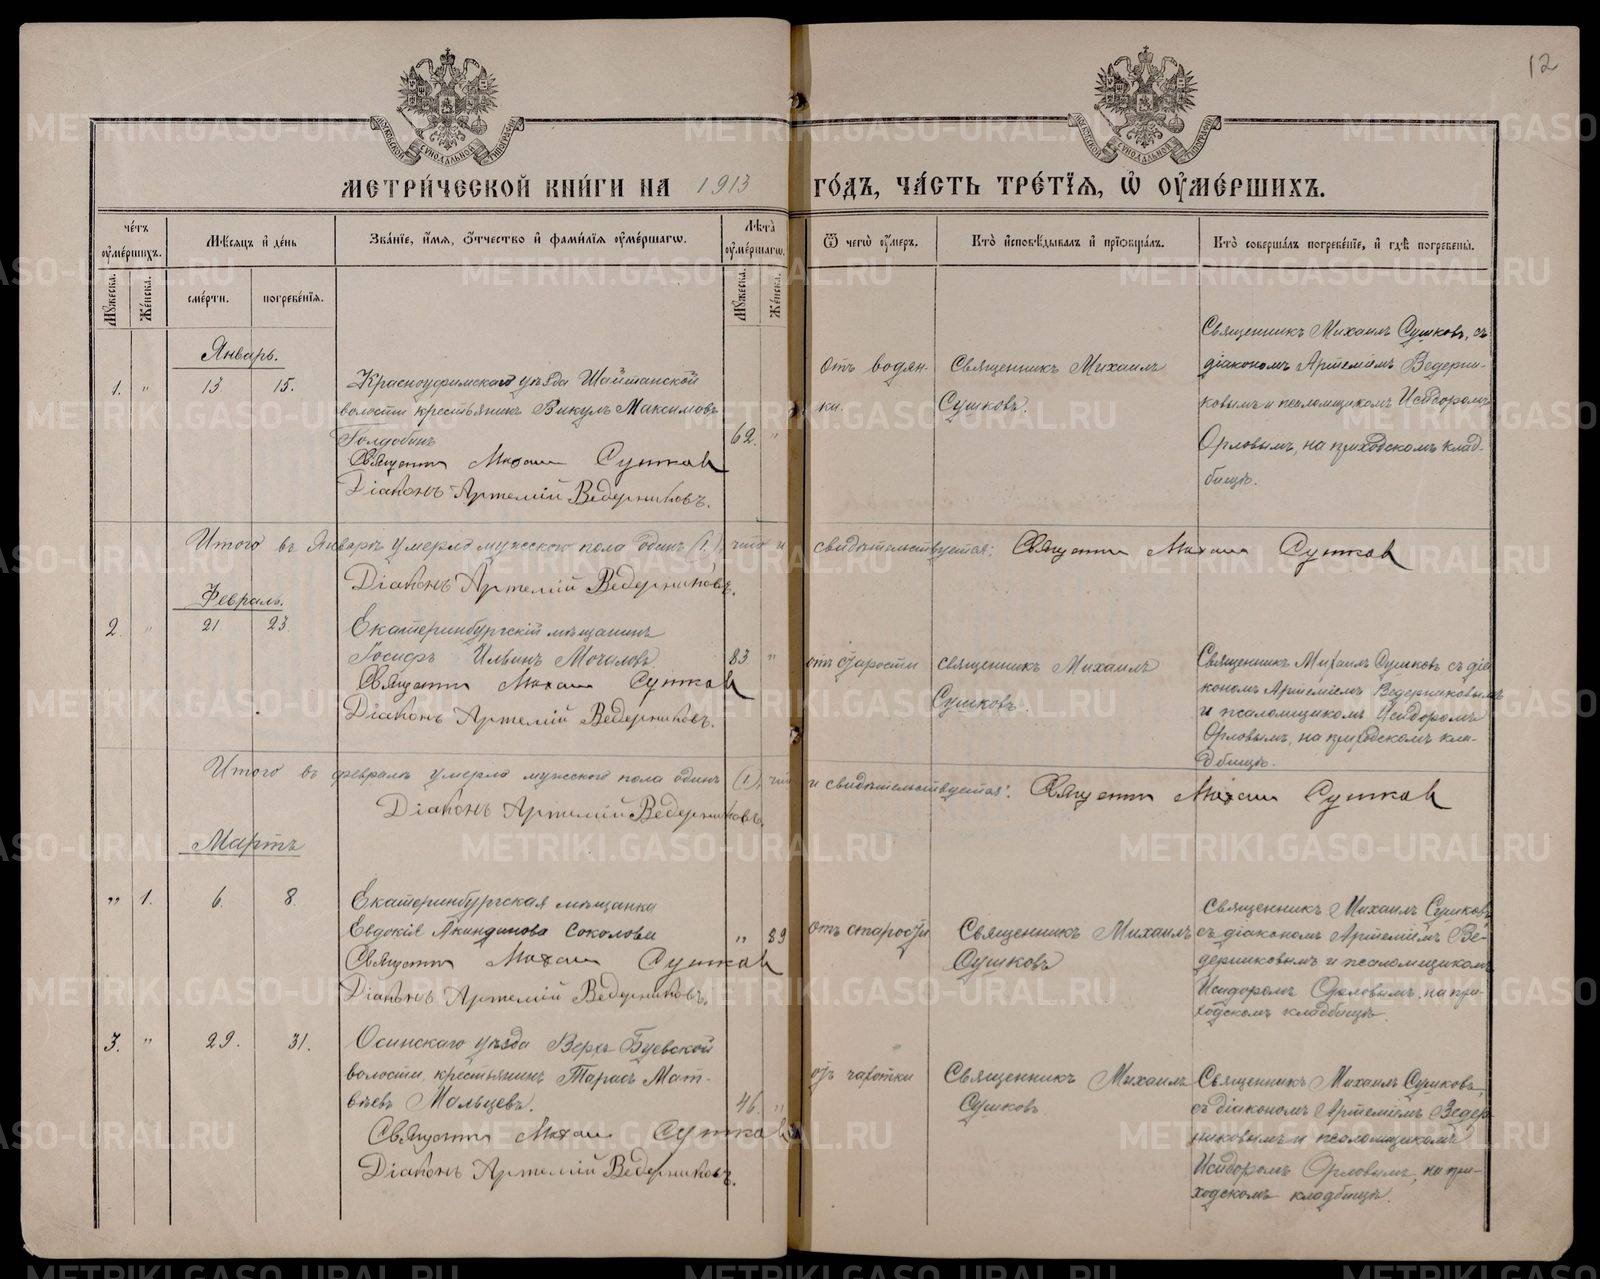 12
МОСКОВСКОЙ СѴНОДАЛЬНОЙ ТИПОГРАФІИ
МОСКОВСКОЙ СѴНОДАЛЬНОЙ ТИПОГРАФІИ
МЕТРИ́ЧЕСКОЙ КНИ́ГИ НА 1913 ГО́ДЪ, ЧА́СТЬ ТРЕ́ТІѦ, Ѡ҆ ОУ҆МЕ́РШИХЪ.
Че́тъ оу҆ме́ршихъ.
Мѣ́сѧцъ и҆ де́нь
Зва́нїе, и҆́мѧ, ѻ҆́тчество и҆ фами́лїѧ оу҆ме́ршагѡ.
Лѣ́та оу҆ме́ршагѡ.
Ѿ чегѡ̀ оу҆́меръ.
Кто̀ и҆сповѣ́дывалъ и҆ прїѡбща́лъ.
Кто̀ соверша́лъ погребе́нїе, и҆ гдѣ̀ погребены̀.
Мꙋ́жеска. Же́нска.
сме́рти. погребе́нїѧ.
Мꙋ́жеска. Же́нска.
Январь.
1. " 13 15.
Красноуфимскаго уѣзда Шайтанской
волости крестьянинъ Викулъ Максимовъ
Голдобинъ
62. "
Священникъ Михаилъ Сушковъ
Діаконъ Артемій Ведерниковъ.
отъ водян-
ки.
Священникъ Михаилъ
Сушковъ.
Священникъ Михаилъ Сушковъ, съ
діакономъ Артеміемъ Ведерни-
ковымъ и псаломщикомъ Исидоромъ
Орловымъ, на приходскомъ клад-
бищѣ.
Итого въ Январѣ умерло мужескаго пола одинъ (1), что и свидѣтельствуется: Священникъ Михаилъ Сушковъ
Діаконъ Артемій Ведерниковъ.
Февраль.
2. " 21 23
Екатеринбургскій мѣщанинъ
Іосифъ Ильинъ Мочаловъ.
83 "
Священникъ Михаилъ Сушковъ
Діаконъ Артемій Ведерниковъ.
отъ старости
священникъ Михаилъ
Сушковъ.
Священникъ Михаилъ Сушковъ съ діа-
кономъ Артеміемъ Ведерниковымъ
и псаломщикомъ Исидоромъ
Орловымъ, на приходскомъ кла-
дбищѣ.
Итого въ февралѣ умерло мужескаго пола одинъ (1), что и свидѣтельствуется: Священникъ Михаилъ Сушковъ
Діаконъ Артемій Ведерниковъ.
Мартъ
" 1. 6. 8.
Екатеринбургская мѣщанка
Евдокія Акиндинова Соколова
" 89
Священникъ Михаилъ Сушковъ
Діаконъ Артемій Ведерниковъ.
отъ старости
Священникъ Михаилъ
Сушковъ
Священникъ Михаилъ Сушковъ
съ діакономъ Артеміемъ Ве-
дерниковымъ и псаломщикомъ
Исидоромъ Орловымъ, на при-
ходскомъ кладбищѣ.
3. " 29. 31.
Осинскаго уѣзда Верхъ Буевской
волости, крестьянинъ Тарасъ Мат-
вѣевъ Мальцевъ.
46. "
Священникъ Михаилъ Сушковъ
Діаконъ Артемій Ведерниковъ.
отъ чахотки
Священникъ Михаилъ
Сушковъ
Священникъ Михаилъ Сушковъ,
съ діакономъ Артеміемъ Ведер-
никовымъ и псаломщикомъ
Исидоромъ Орловымъ, на при-
ходскомъ кладбищѣ.
METRIKI.GASO-URAL.RU